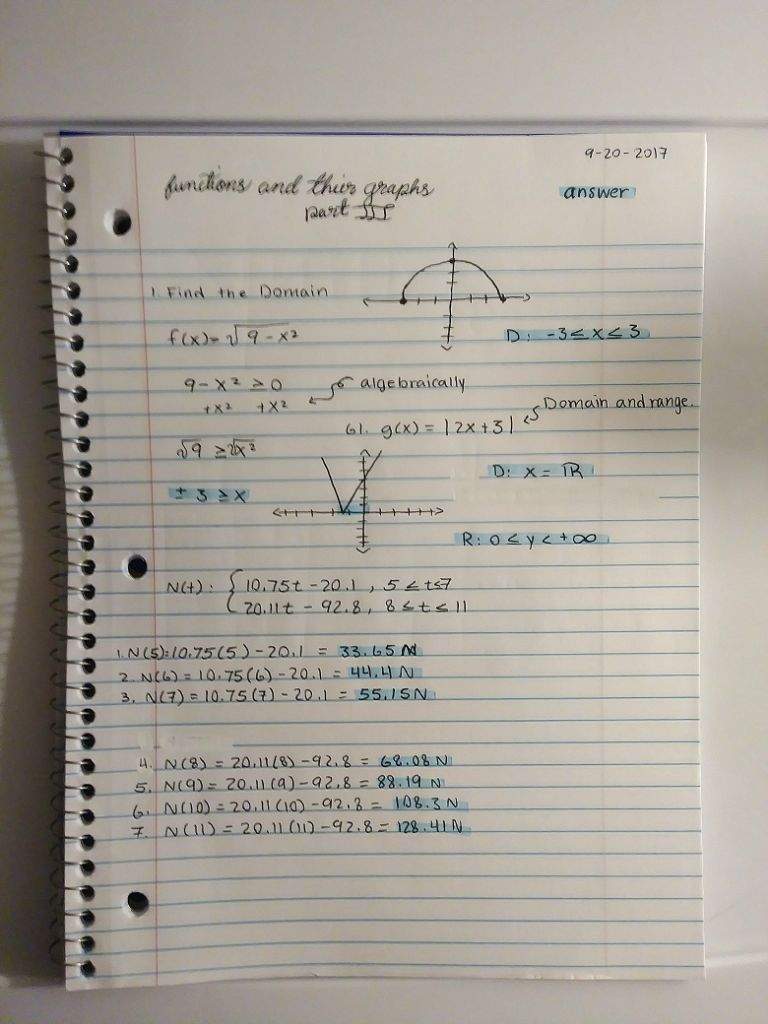 9-20-2017
functions and thier graphs
part III
answer
1. Find the Domain
f(x)= √9-x²
D: -3≤x≤3
9-x² ≥0
+x² +x²
algebraically
Domain and range.
61. g(x) = |2x+3|
√9 ≥ √x²
D: x = ℝ
± 3 ≥ x
R: 0 ≤ y < +∞
N(t): { 10.75t - 20.1 , 5 ≤ t ≤ 7
20.11t - 92.8, 8 ≤ t ≤ 11
1. N(5)=10.75(5)-20.1 = 33.65 N
2. N(6) = 10.75(6)-20.1 = 44.4 N
3. N(7) = 10.75(7)-20.1 = 55.15N
4. N(8) = 20.11(8)-92.8 = 68.08 N
5. N(9) = 20.11(9)-92.8 = 88.19 N
6. N(10)=20.11(10)-92.8 = 108.3 N
7. N(11) = 20.11(11)-92.8 = 128.41 N